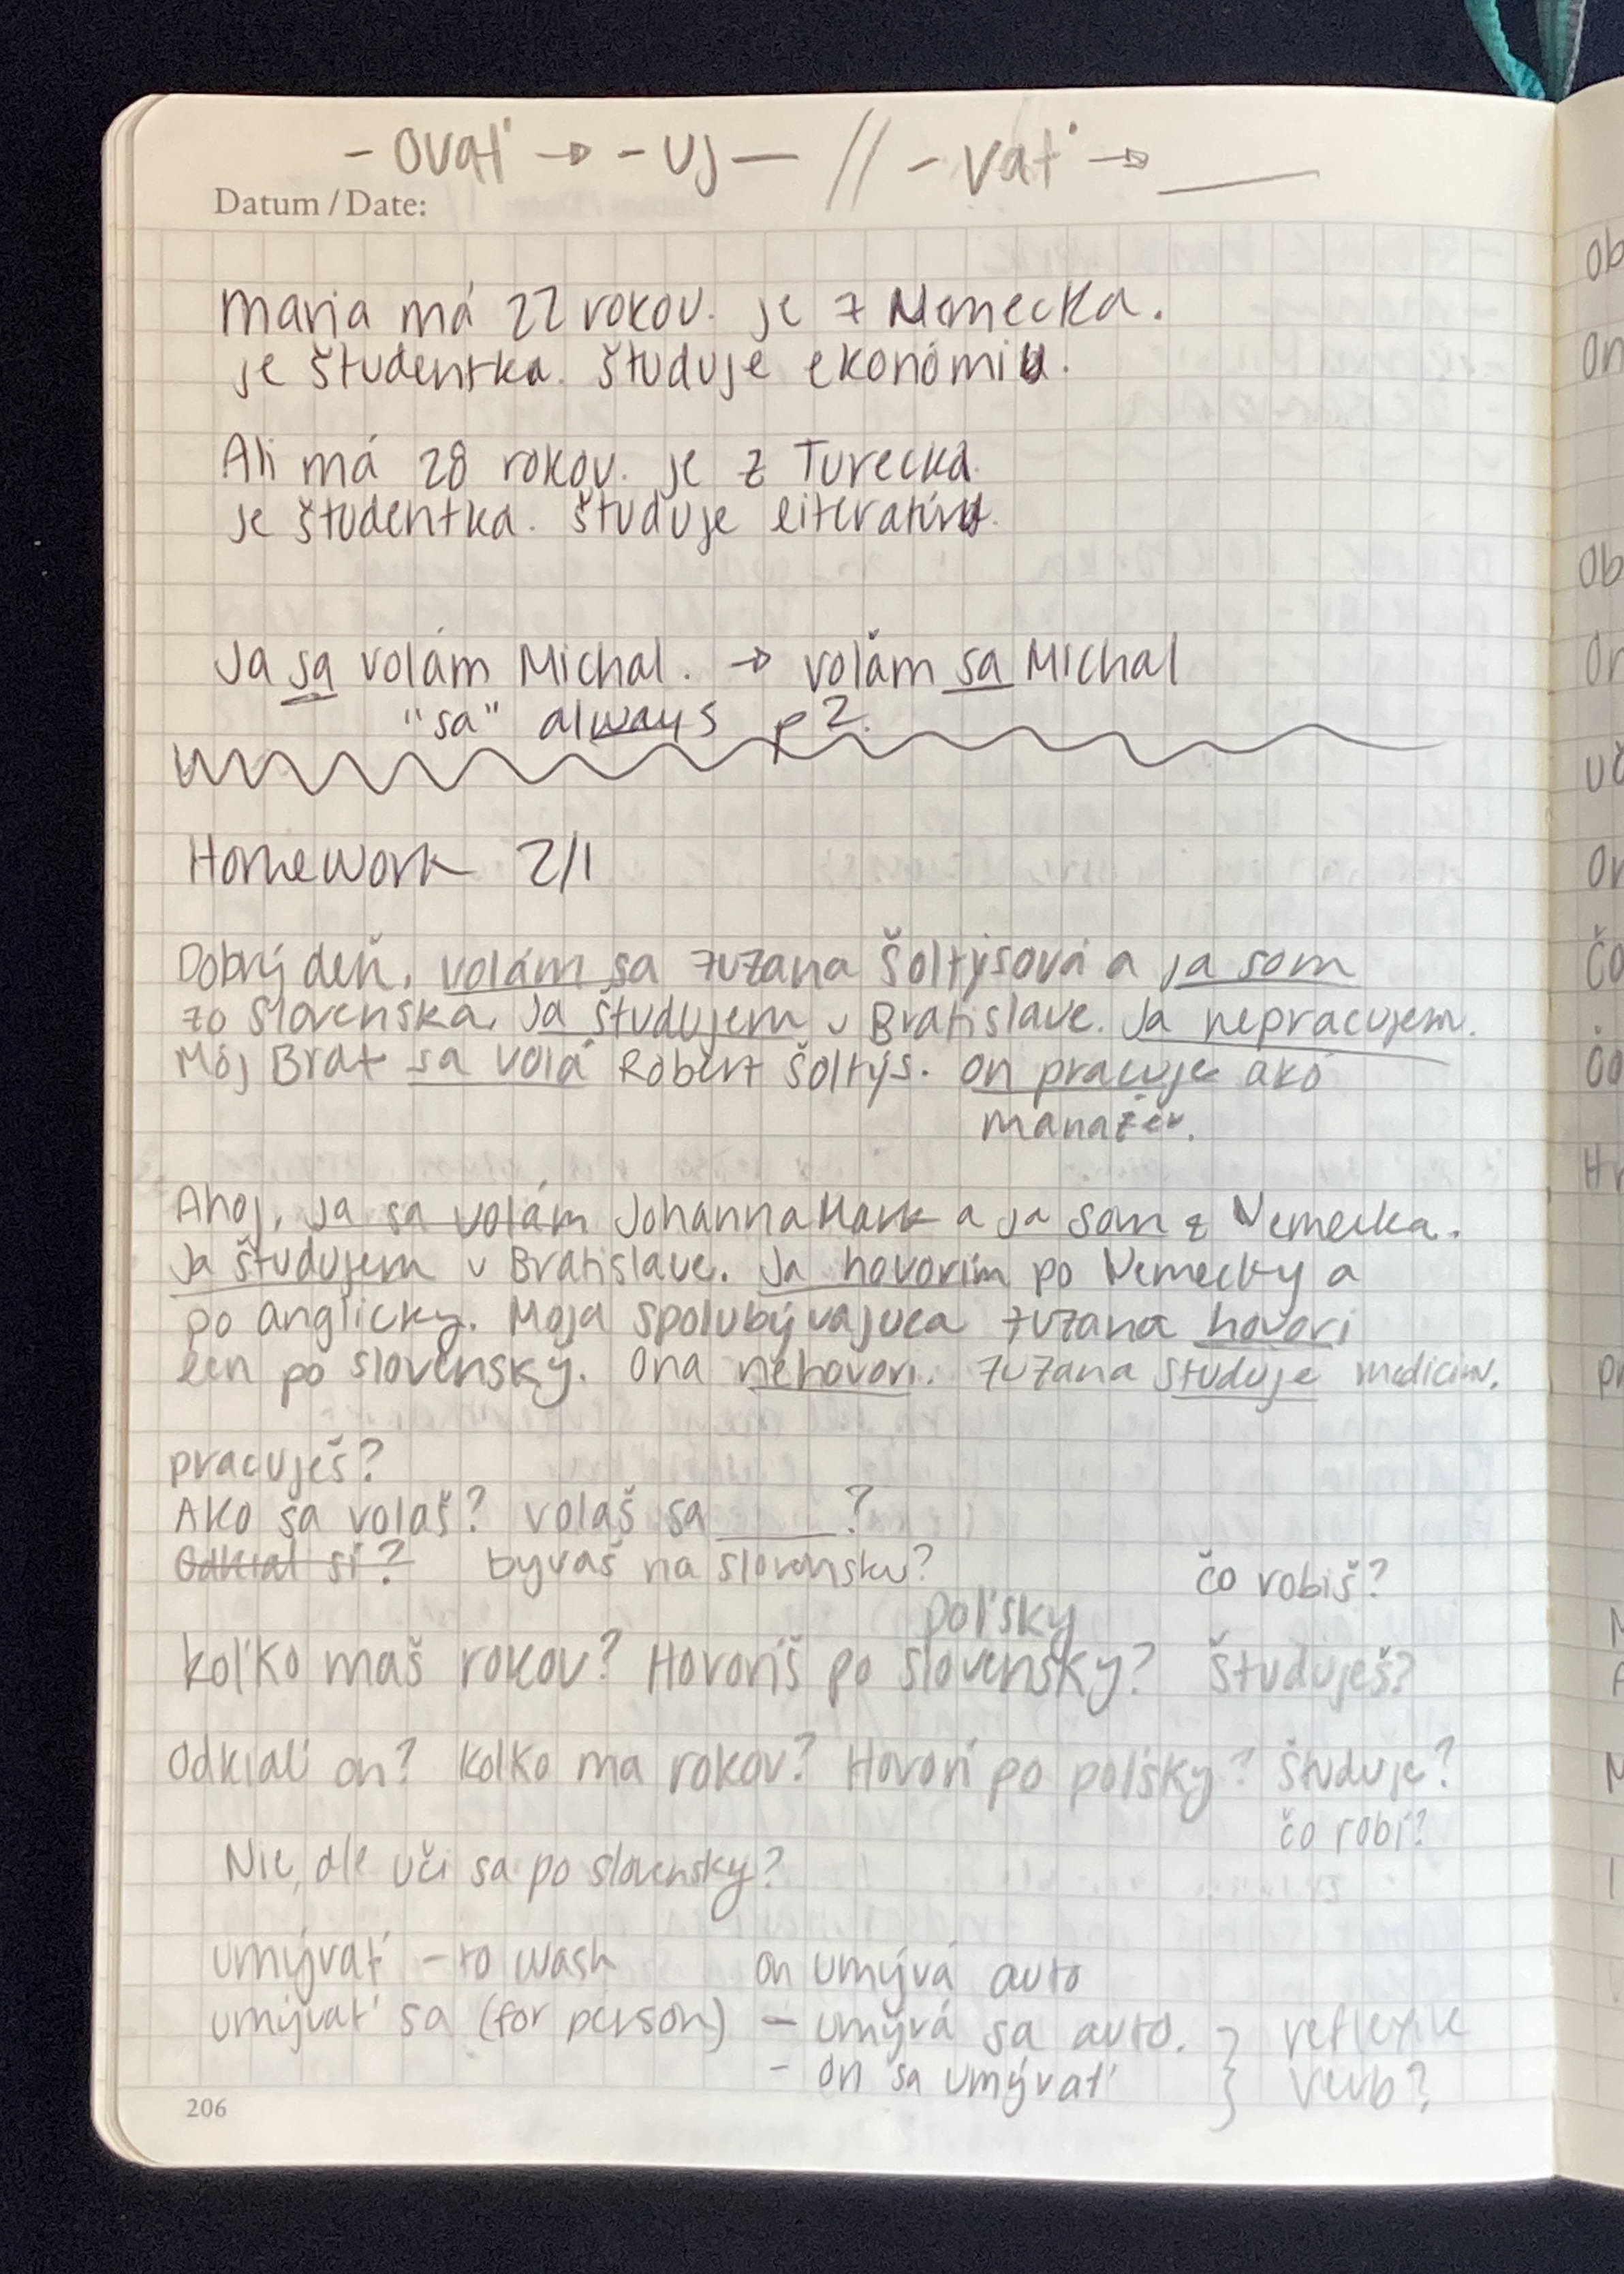 - ovať → - uj — // - vať → ___
Datum / Date:
Maria má 22 rokov. je z Nemecka.
je študentka. študuje ekonómiu.
Ali má 28 rokov. je z Turecka.
je študentka. študuje literatúru.
Ja sa volám Michal. → volám sa Michal
"sa" always p 2.
Homework 2/1
Dobrý deň, volám sa Zuzana Šoltýsová a ja som
zo Slovenska. Ja študujem v Bratislave. Ja nepracujem.
Môj Brat sa volá Robert Šoltýs. on pracuje ako
manažér.
Ahoj, ja sa volám Johanna Mark a ja som z Nemecka.
Ja študujem v Bratislave. Ja hovorím po Nemecky a
po anglicky. Moja spolubývajuca Zuzana hovorí
len po slovensky. Ona nehovori. Zuzana študuje medicinu.
pracuješ?
Ako sa volaš? volaš sa ____?
Odkial si? byvaš na slovensku?
čo robiš?
poľsky
koľko maš rokov? Hovoriš po slovensky? študuješ?
Odkiaľ on? Koľko ma rokov? Hovorí po poľsky? študuje?
čo robí?
Nie, ale uči sa po slovensky?
umývať - to wash on umývá auto
umývať sa (for person) - umývá sa auto. } reflexive
- on sa umývať } verb?
206